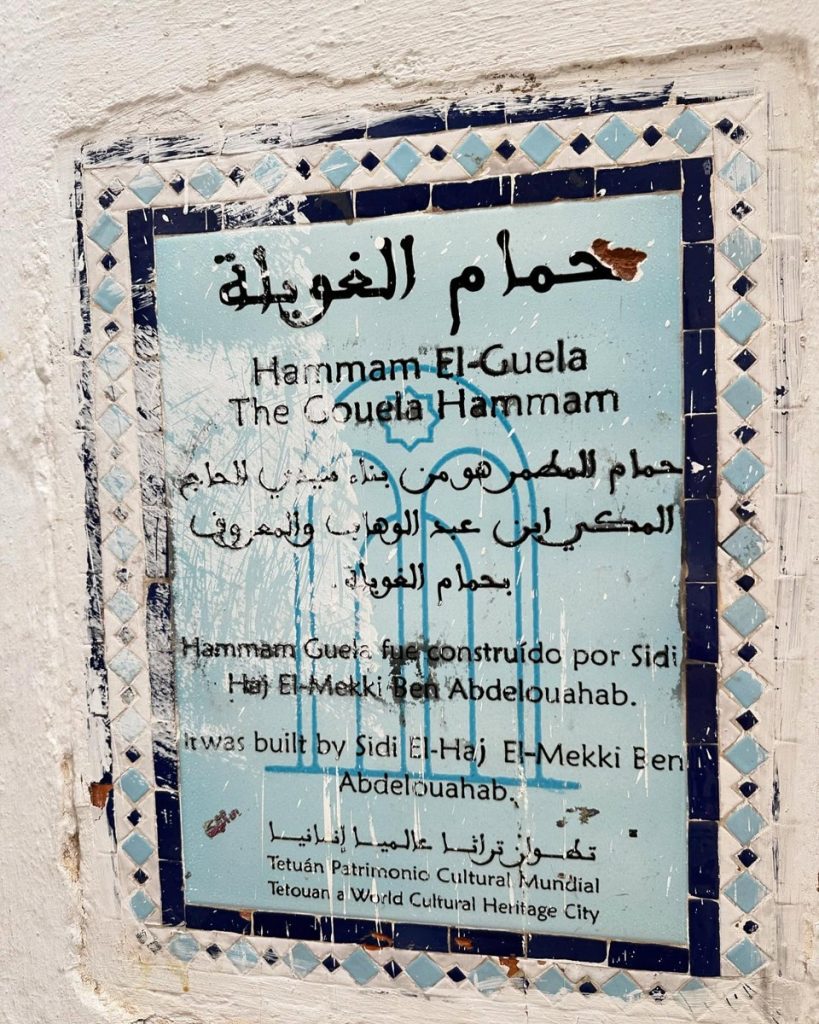 حمام الغويلة
Hammam El-Guela
The Gouela Hammam
حمام المطمر هو من بناء سيدي الحاج
المكي ابن عبد الوهاب والمعروف
بحمام الغويلة.
Hammam Guela fue construído por Sidi
Haj El-Mekki Ben Abdelouahab.
it was built by Sidi El-Haj El-Mekki Ben
Abdelouahab.
تطوان تراثا عالميا إنسانيا
Tetuán Patrimonio Cultural Mundial
Tetouan a World Cultural Heritage City